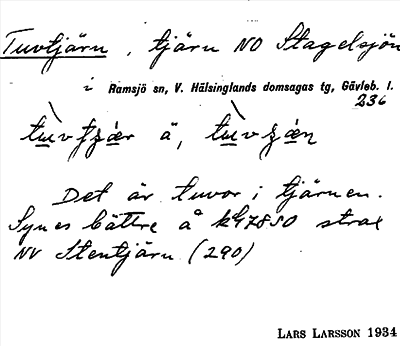 Tuvtjärn, tjärn NO Stagelsjön
i Ramsjö sn, V. Hälsinglands domsagas tg, Gävleb. l.
236
ä,
Det är tuvor i tjärnen.
Synes bättre å k47850 strax
NV Stentjärn (290)
LARS LARSSON 1934